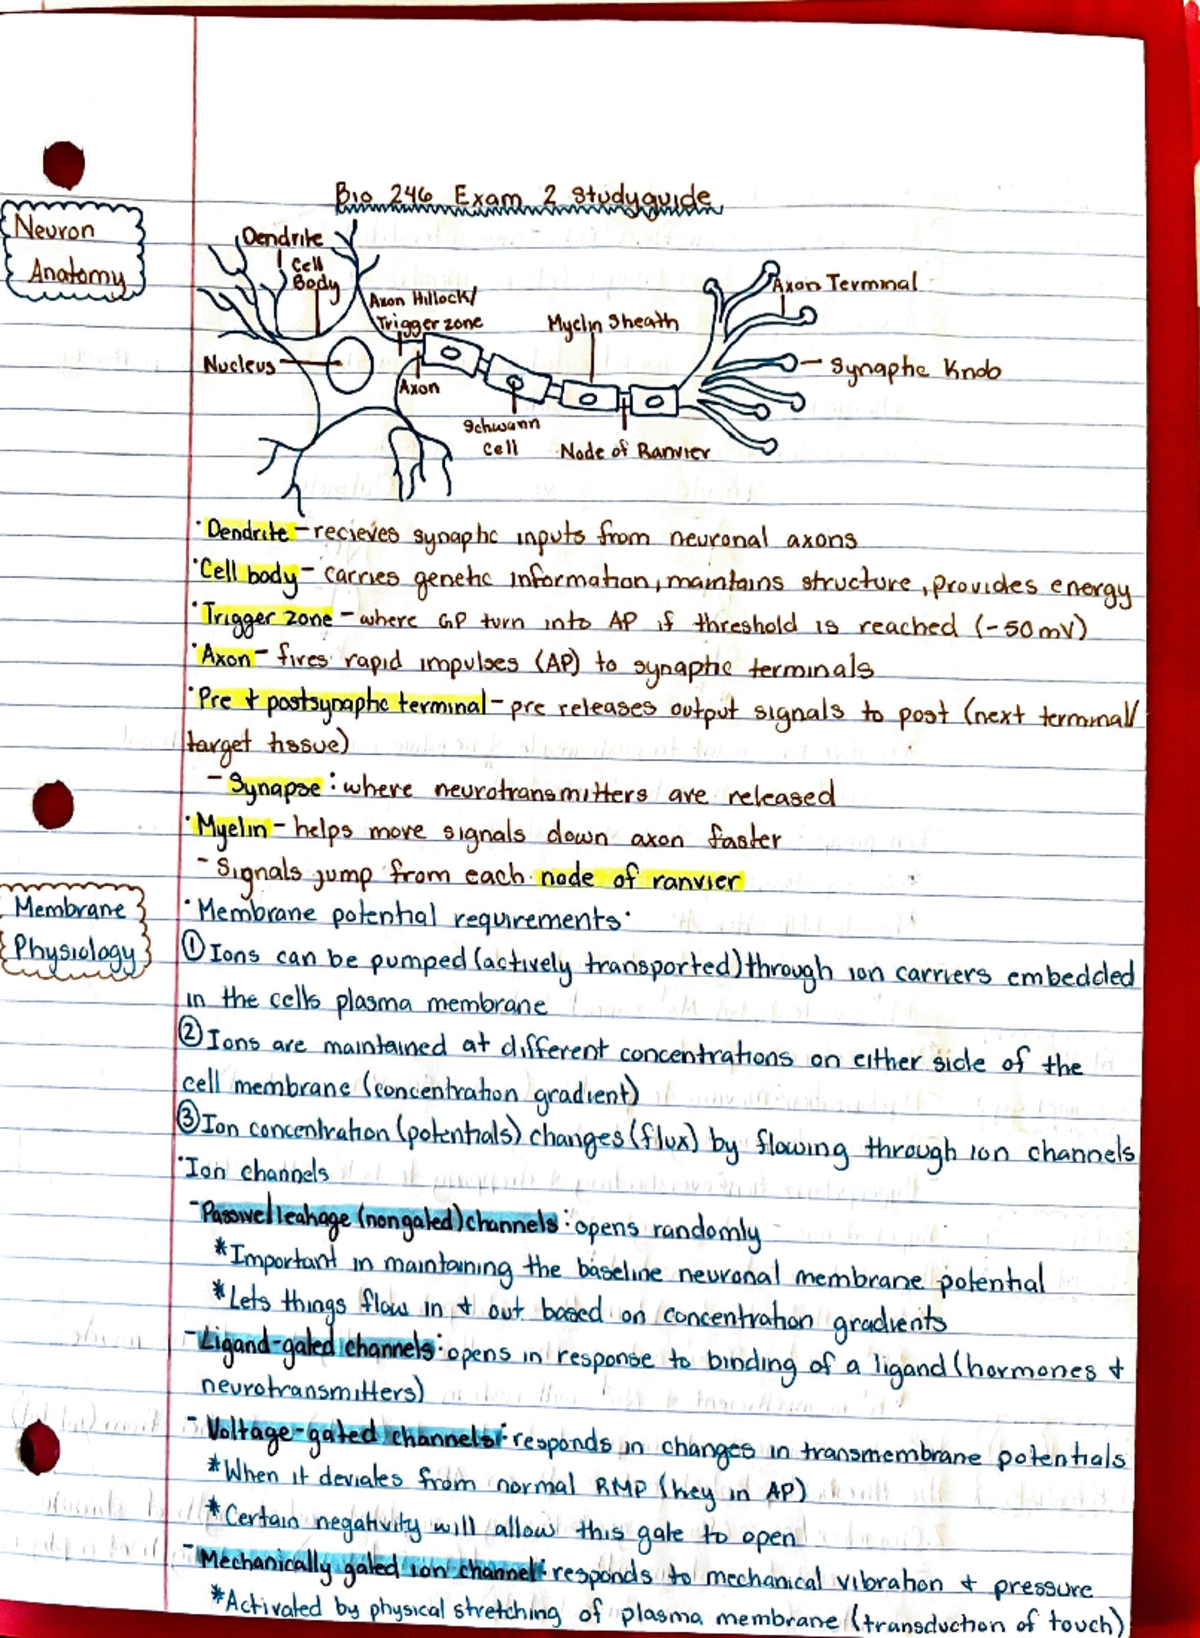 Bio 246 Exam 2 Studyguide
Neuron
Anatomy
Dendrite
Cell
Body
Axon Hillock/
Trigger zone
Myelin Sheath
Axon Terminal
Nucleus
Axon
Synaptic Knob
Schwann
Cell
Node of Ranvier
·Dendrite-recieves synaptic inputs from neuronal axons
·Cell body- carries genetic information, maintains structure, provides energy
·Trigger zone-where GP turn into AP if threshold is reached (-50mV)
·Axon- fires rapid impulses (AP) to synaptic terminals
·Pre + postsynaptic terminal-pre releases output signals to post (next terminal/
target tissue)
-Synapse: where neurotransmitters are released
·Myelin- helps move signals down axon faster
-Signals jump from each node of ranvier
Membrane
Physiology
·Membrane potential requirements·
① Ions can be pumped (actively transported) through ion carriers embedded
in the cells plasma membrane
② Ions are maintained at different concentrations on either side of the
cell membrane (concentration gradient)
③ Ion concentration (potentials) changes (flux) by flowing through ion channels
·Ion channels
-Passive/leakage (nongated) channels: opens randomly
*Important in maintaining the baseline neuronal membrane potential
*Lets things flow in + out based on concentration gradients
-Ligand-gated channels: opens in response to binding of a ligand (hormones +
neurotransmitters)
-Voltage-gated channels: responds in changes in transmembrane potentials
*When it deviates from normal RMP (key in AP)
*Certain negativity will allow this gate to open
-Mechanically gated ion channel: responds to mechanical vibration + pressure
*Activated by physical stretching of plasma membrane (transduction of touch)